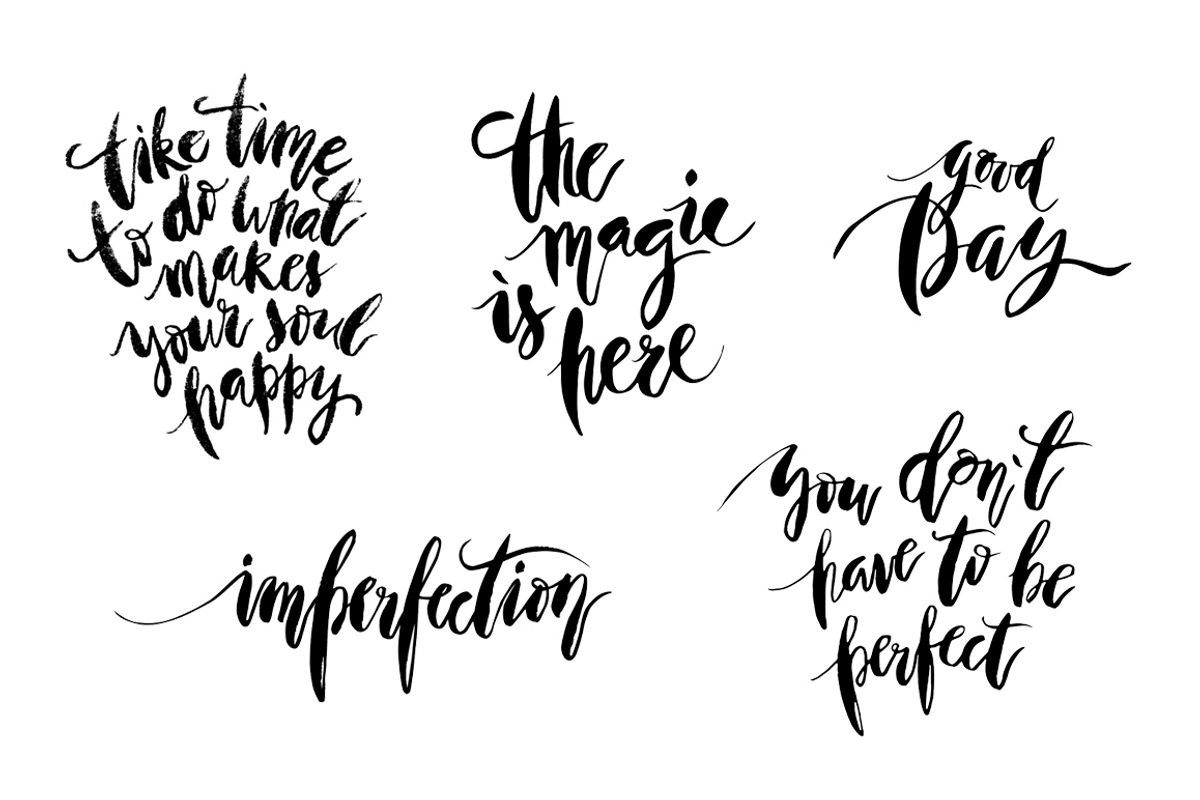 take time
to do what
makes
your soul
happy
the
magic
is
here
good
Day
imperfection
you don't
have to be
perfect